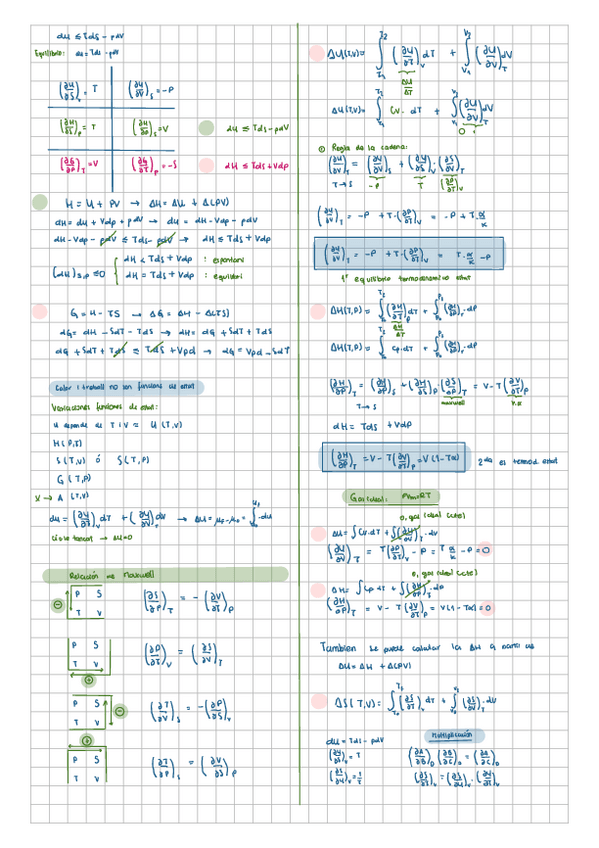 dU ≤ TdS - pdV
Equilibrio: dU = TdS - pdV
(∂U/∂S)_V = T (∂U/∂V)_S = -P
(∂H/∂S)_P = T (∂H/∂P)_S = V dU ≤ TdS - pdV
(∂G/∂P)_T = V (∂G/∂T)_P = -S dH ≤ TdS + Vdp
H = U + PV → ΔH = ΔU + Δ(PV)
dH = dU + Vdp + pdV → dU = dH - Vdp - pdV
dH - Vdp - pdV ≤ TdS - pdV → dH ≤ TdS + Vdp
(dH)S,P ≤ 0 { dH < TdS + Vdp : espontani
dH = TdS + Vdp : equilibri
G = H - TS → ΔG = ΔH - Δ(TS)
dG = dH - SdT - TdS → dH = dG + SdT + TdS
dG + SdT + TdS ≤ TdS + Vpd → dG = Vpd - SdT
Calor i treball no son funcions de estat
Variaciones funcions de estat:
U depende de T i V = U(T,V)
H(P,T)
S(T,V) ó S(T,P)
G(T,P)
A (T,V)
dU = (∂U/∂T)_V dT + (∂U/∂V)_T dV → ΔU = ∫ dU
Cicle tancat → ΔU = 0
Relación de Maxwell
P S
T V
(∂S/∂P)_T = -(∂V/∂T)_P
P S
T V
(∂P/∂T)_V = (∂S/∂V)_T
P S
T V
(∂T/∂V)_S = -(∂P/∂S)_V
P S
T V
(∂T/∂P)_S = (∂V/∂S)_P
ΔU(T,V) = ∫ (∂U/∂T)_V dT + ∫ (∂U/∂V)_T dV
ΔU(T,V) = ∫ Cv · dT + ∫ (∂U/∂V)_T dV
Regla de la cadena:
(∂U/∂V)_T = (∂U/∂V)_S + (∂U/∂S)_V · (∂S/∂V)_T
T→S -P T (∂P/∂T)_V
(∂U/∂V)_T = -P + T·(∂P/∂T)_V = -P + T·α/κ
(∂U/∂V)_T = -P + T·(∂P/∂T)_V = T·α/κ - P
1ª equilibrio termodinamico estat
ΔH(T,P) = ∫ (∂H/∂T)_P dT + ∫ (∂H/∂P)_T · dP
ΔH(T,P) = ∫ Cp·dT + ∫ (∂H/∂P)_T · dP
(∂H/∂P)_T = (∂H/∂P)_S + (∂H/∂S)_P · (∂S/∂P)_T = V - T(∂V/∂T)_P
T→S maxwell V·α
dH = TdS + Vdp
(∂H/∂P)_T = V - T(∂V/∂T)_P = V(1 - Tα) 2da es termod. estat
Gas ideal: PVm=RT
0, gas ideal (cte)
ΔU = ∫Cv·dT + ∫(∂U/∂V)_T · dV
(∂U/∂V)_T = T(∂P/∂T)_V - P = T α/κ - P = 0
0, gas ideal (cte)
ΔH = ∫Cp dT + ∫(∂H/∂P)_T · dp
(∂H/∂P)_T = V - T(∂V/∂T)_P = V(1 - Tα) = 0
Tambien se puede calcular la ΔH a partir de
ΔU = ΔH + Δ(PV)
ΔS(T,V) = ∫ (∂S/∂T)_V dT + ∫ (∂S/∂V)_T · dV
Multiplicación
dU = TdS - pdV
(∂U/∂S)_V = T (∂A/∂B)_D (∂B/∂C)_D = (∂A/∂C)_D
(∂S/∂U)_V = 1/T (∂S/∂T)_V = (∂S/∂U)_V · (∂U/∂T)_V